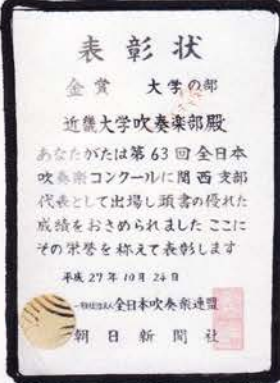 表彰状
金賞 大学の部
近畿大学吹奏楽部殿
あなたがたは第63回全日本
吹奏楽コンクールに関西支部
代表として出場し頭書の優れた
成績をおさめられました ここに
その栄誉を称えて表彰します
平成27年10月24日
一般社団法人全日本吹奏楽連盟
朝日新聞社